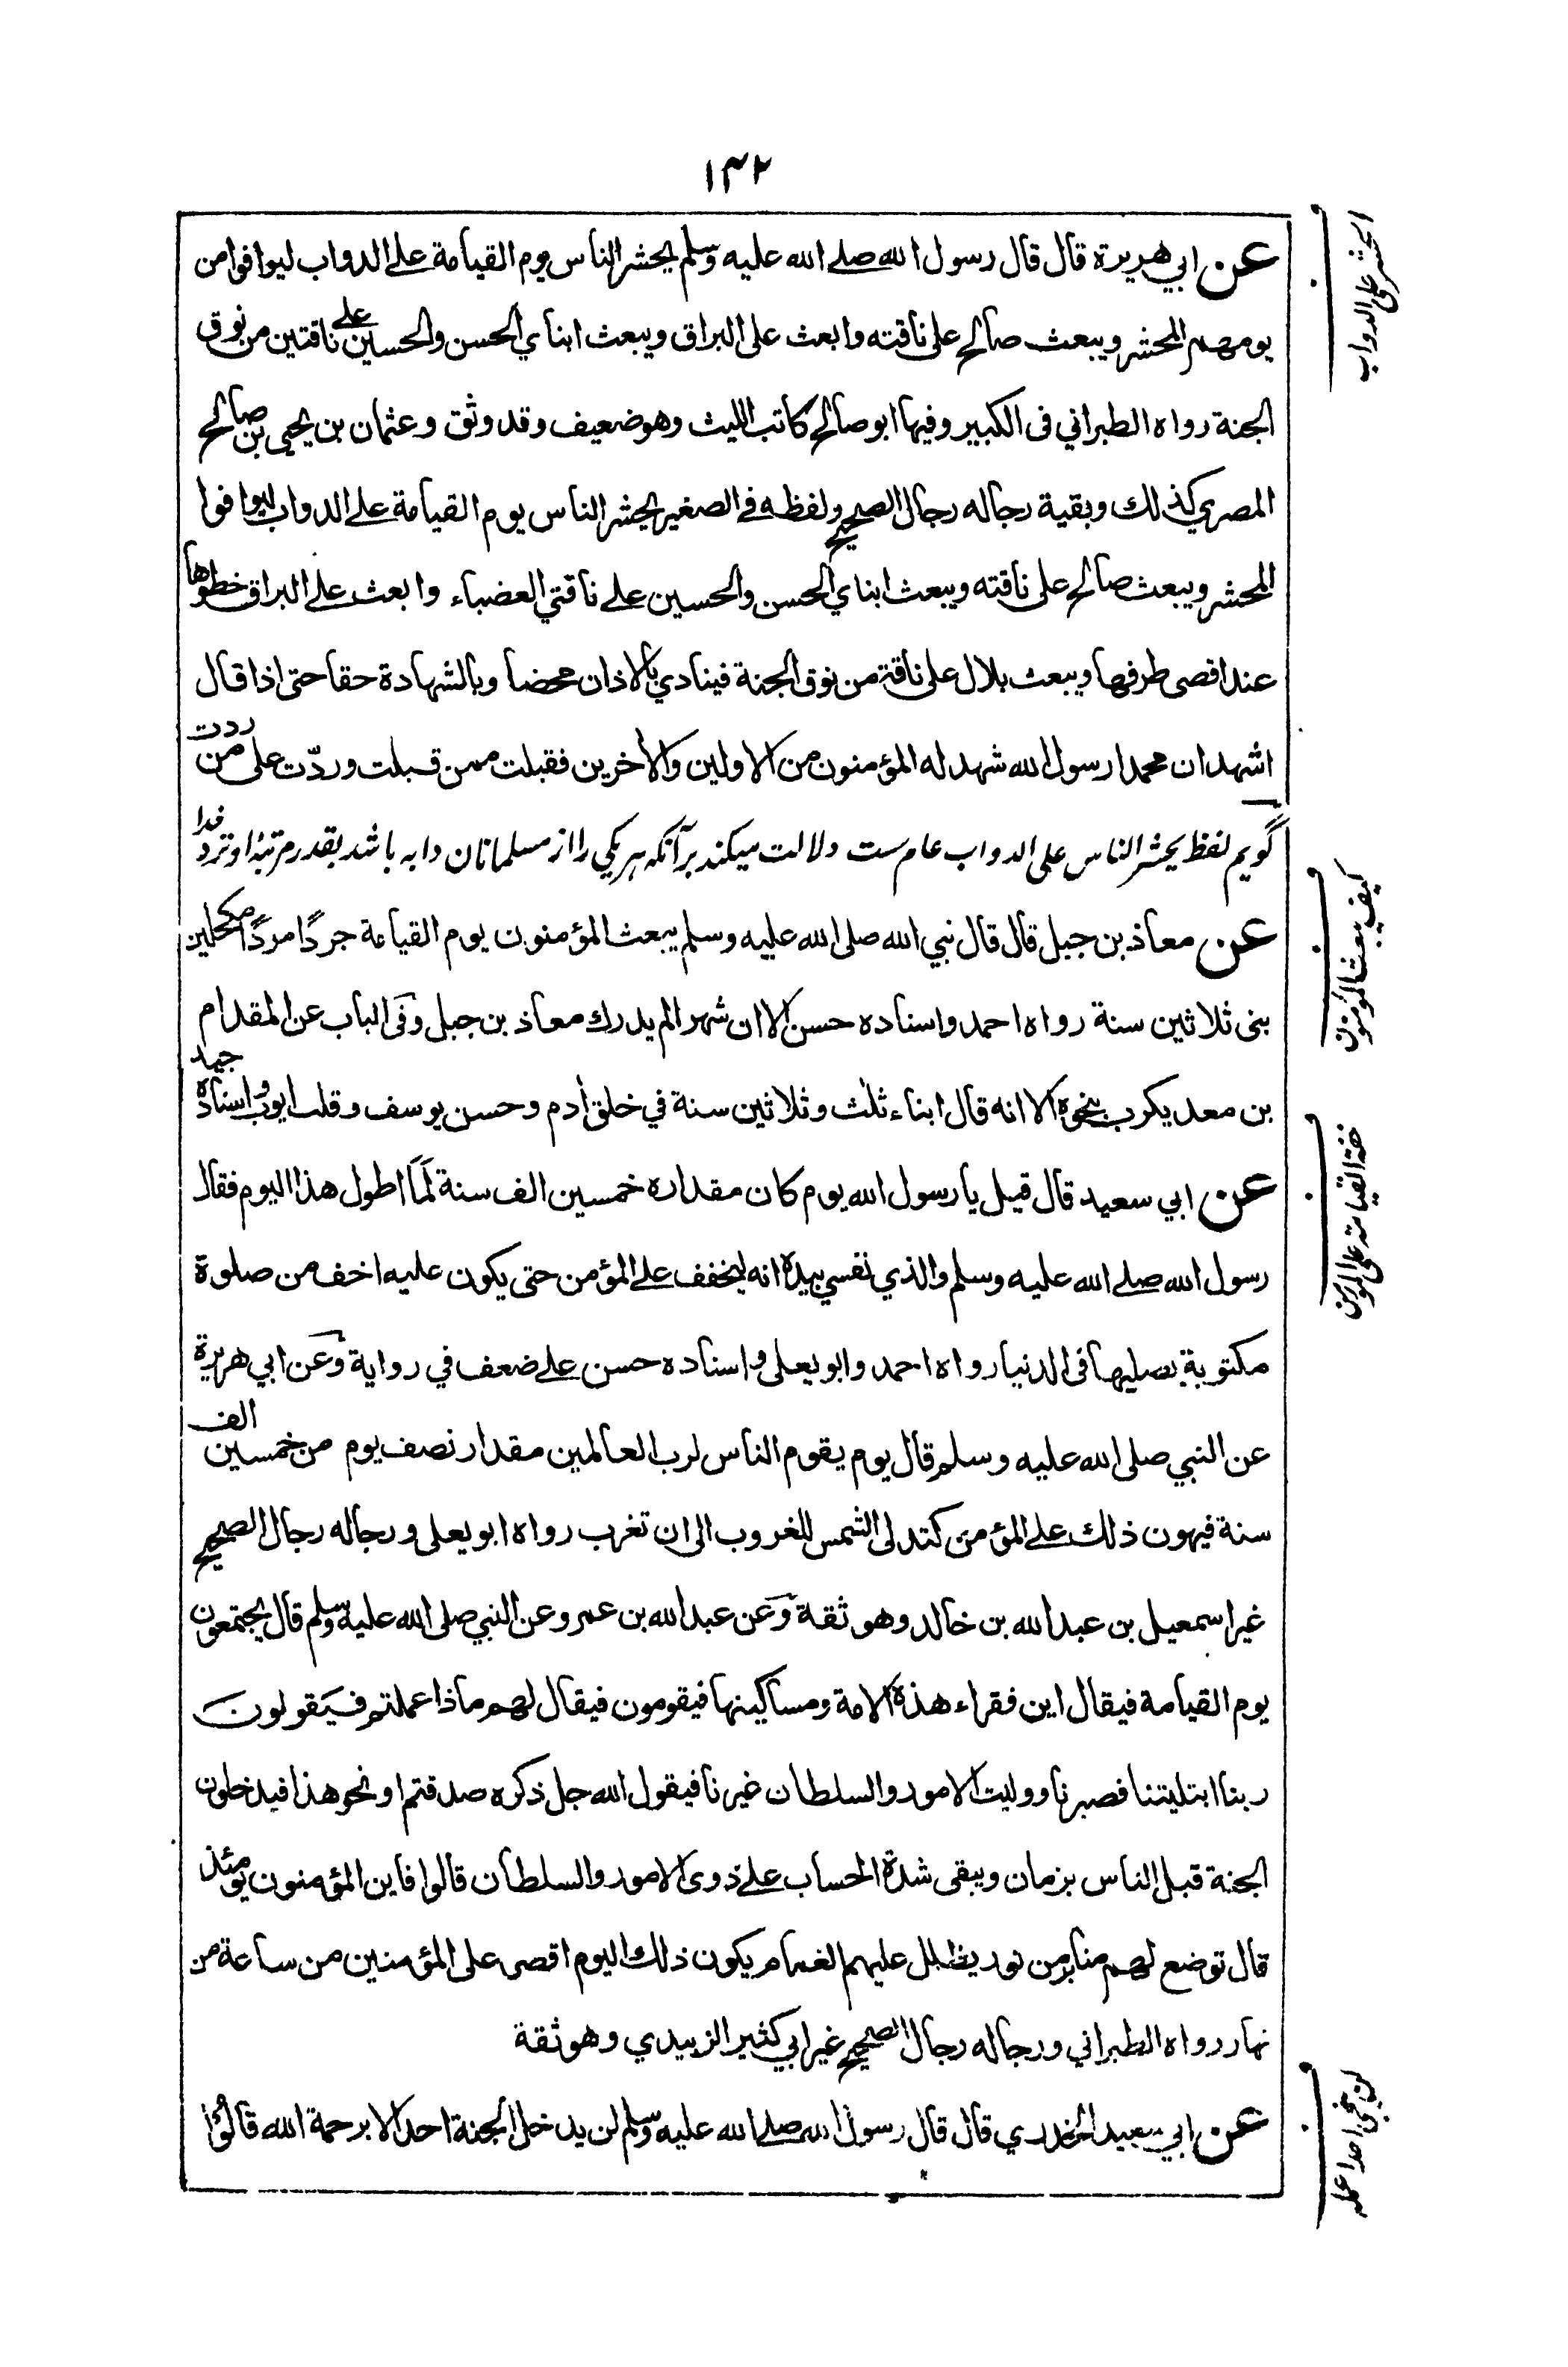 ١٣٢
الحشر على الدواب
عن ابي هريرة قال قال رسول الله صلى الله عليه وسلم يحشر الناس يوم القيامة على الدواب ليوافوا من
يومهم المحشر ويبعث صالح على ناقته وابعث على البراق ويبعث ابناي الحسن والحسين على ناقتين من نوق
الجنة رواه الطبراني فى الكبير وفيها ابو صالح كاتب الليث وهو ضعيف وقد وثق وعثمان بن يحيى بن صالح
المصري كذلك وبقية رجاله رجال الصحيح ولفظه في الصغير يحشر الناس يوم القيامة على الدواب ليوافوا
المحشر ويبعث صالح على ناقته ويبعث ابناي الحسن والحسين على ناقتي العضباء وابعث على البراق خطوها
عند اقصى طرفها ويبعث بلال على ناقة من نوق الجنة فينادي بالاذان محضا وبالشهادة حقا حتى اذا قال
اشهد ان محمدا رسول الله شهد له المؤمنون من الاولين والأخرين فقبلت ممن قبلت وردّت على من ردت
گويم لفظ يحشر الناس على الدواب عام ست دلالت ميكند برآنكه هر يكى را از مسلمانان دابه باشد بقدر مرتبۀ او نزد خدا
كيف يبعث المؤمنون
عن معاذ بن جبل قال قال نبي الله صلى الله عليه وسلم يبعث المؤمنون يوم القيامة جردًا مردًا مكحلين
بنى ثلاثين سنة رواه احمد واسناده حسن الا ان شهرا لم يدرك معاذ بن جبل وفى الباب عن المقدام
بن معديكرب بنحوه الا انه قال ابناء ثلث وثلاثين سنة في خلق أدم وحسن يوسف وقلب ايوب واسناده جيد
خفة القيامة على المؤمن
عن ابي سعيد قال قيل يا رسول الله يوم كان مقداره خمسين الف سنة لَمَا اطول هذا اليوم فقال
رسول الله صلى الله عليه وسلم والذي نفسي بيده انه ليخفف على المؤمن حتى يكون عليه اخف من صلوة
مكتوبة يصليها فى الدنيا رواه احمد وابو يعلى واسناده حسن على ضعف في رواية وعن ابي هريرة
عن النبي صلى الله عليه وسلم قال يوم يقوم الناس لرب العالمين مقدار نصف يوم من خمسين الف
سنة فيهون ذلك على المؤمن كتدلى الشمس للغروب الى ان تغرب رواه ابو يعلى ورجاله رجال الصحيح
غير اسمعيل بن عبد الله بن خالد وهو ثقة وعن عبد الله بن عمرو عن النبي صلى الله عليه وسلم قال يجتمعون
يوم القيامة فيقال اين فقراء هذه الامة ومساكينها فيقومون فيقال لهم ماذا عملتم فيقولون
ربنا ابتليتنا فصبرنا ووليت الامور والسلطان غيرنا فيقول الله جل ذكره صدقتم او نحو هذا فيدخلون
الجنة قبل الناس بزمان ويبقى شدة الحساب على ذوى الامور والسلطان قالوا فاين المؤمنون يومئذ
قال توضع لهم منابر من نور يظلل عليهم الغمام يكون ذلك اليوم اقصر على المؤمنين من ساعة من
نهار رواه الطبراني ورجاله رجال الصحيح غير ابي كثير الزبيدي وهو ثقة
لن ينجي احدا عمله
عن ابي سعيد الخدري قال قال رسول الله صلى الله عليه وسلم لن يدخل الجنة احد الا برحمة الله قالوا